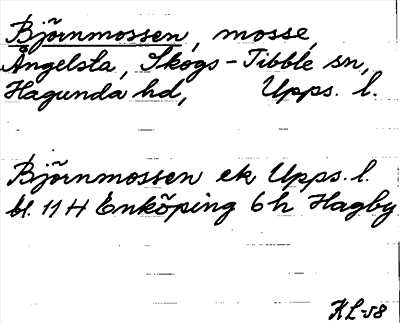 Björnmossen, mosse,
Ängelsta, Skogs-Tibble sn,
Hagunda hd, Upps. l.
Björnmossen ek Upps. l.
bl. 11 H Enköping 6h Hagby
KL-58